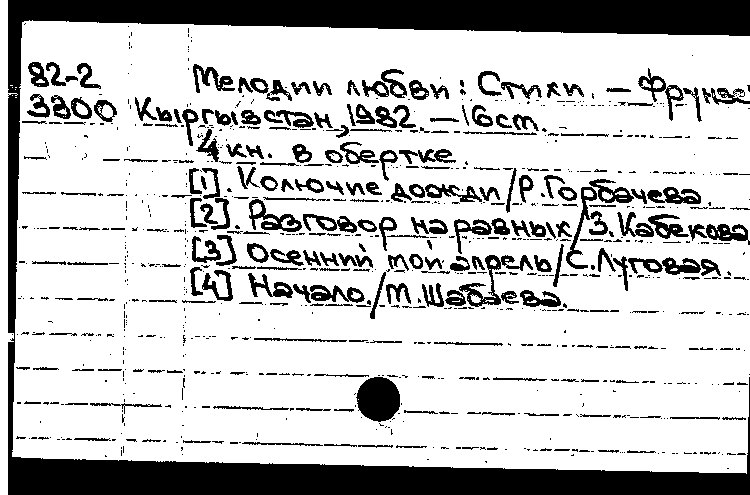 82-2 Мелодии любви: Стихи. – Фрунзе:
3300 Кыргызстан, 1982. – 16 ст.
4 кн. в обертке.
[1]. Колючие дожди/Р.Горбачева.
[2]. Разговор на равных/З.Кабекова
[3] Осенний мой апрель/С.Луговая.
[4] Начало./М.Шабаева.